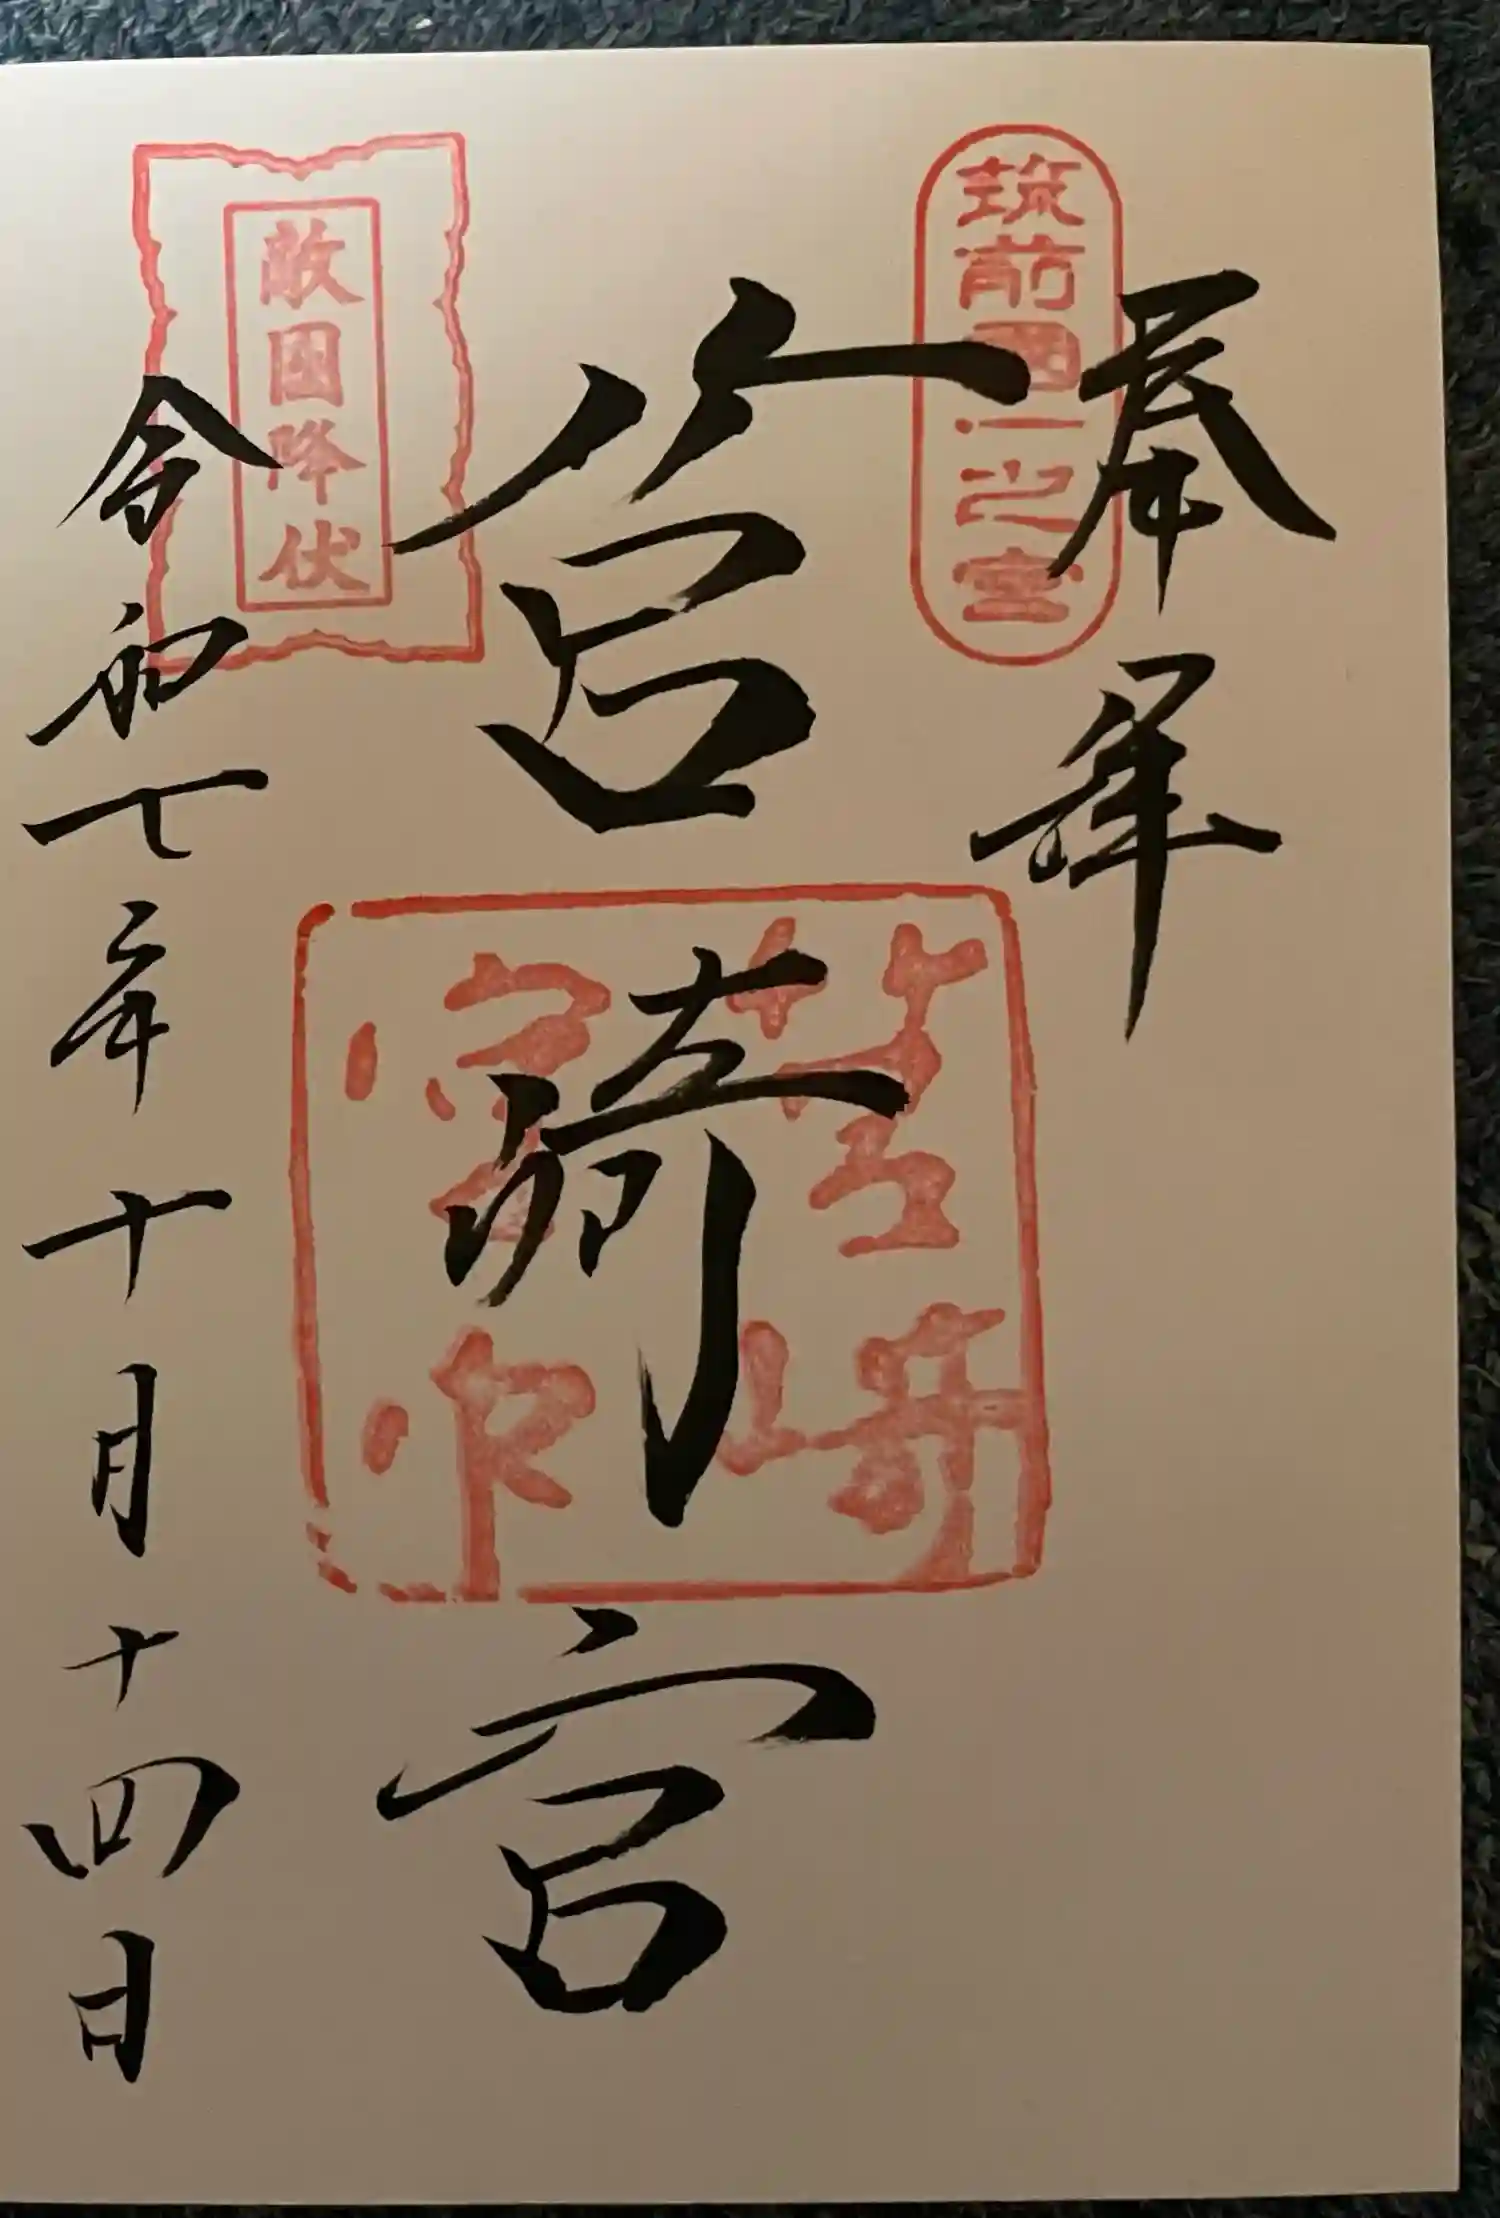 奉拝
筑前國一之宮
筥崎宮
筥崎
宮印
敵國降伏
令和七年十月十四日